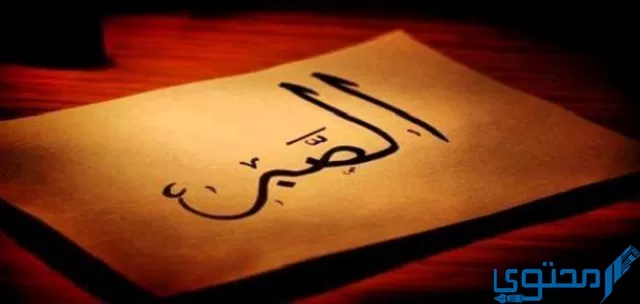 الصَّبر
محتوى